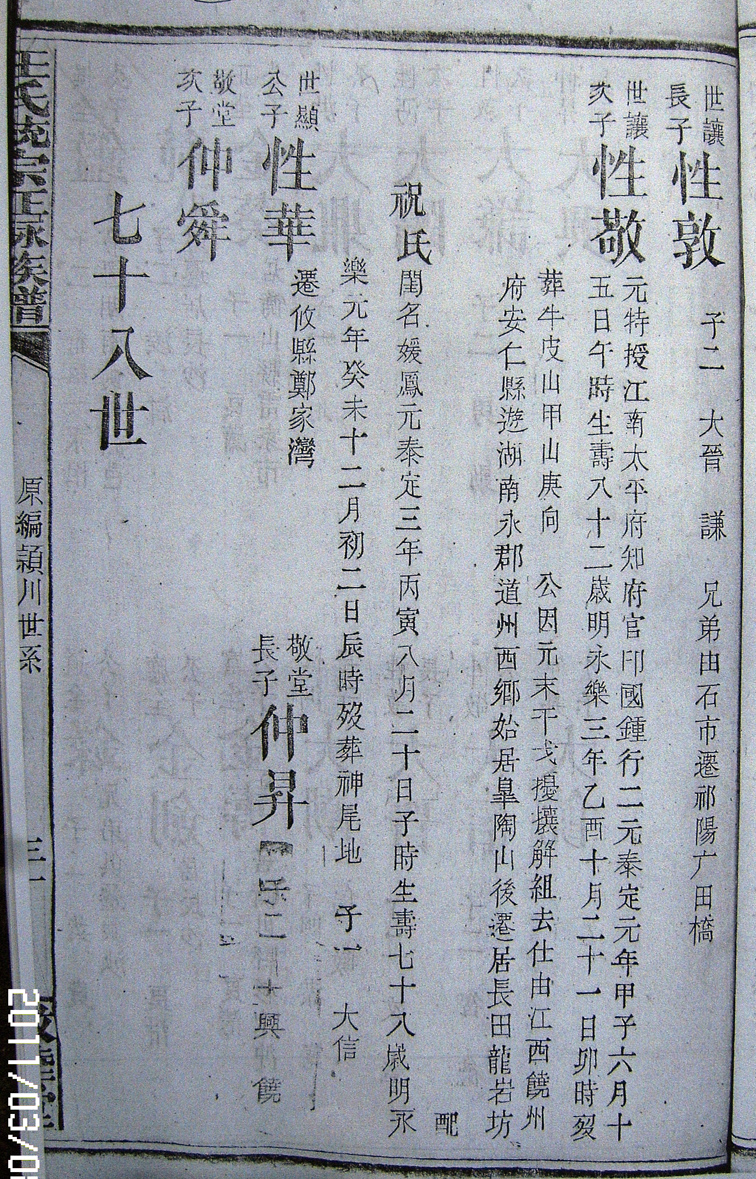 世讓
長子
性敦
子二 大晉 謙 兄弟由石市遷祁陽广田橋
世讓
次子
性敬
元特授江南太平府知府官印國鍾行二元泰定元年甲子六月十
五日午時生壽八十二歲明永樂三年乙酉十月二十一日卯時歿
葬牛皮山甲山庚向 公因元末干戈擾攘解組去仕由江西饒州
府安仁縣遊湖南永郡道州西鄉始居皐陶山後遷居長田龍岩坊
配
祝氏
閨名媛鳳元泰定三年丙寅八月二十日子時生壽七十八歲明永
樂元年癸未十二月初二日辰時歿葬神尾地 子一 大信
世顯
公子
性華
遷攸縣鄭家灣
敬堂
長子
仲昇
子二
大興 饒
敬堂
次子
仲舜
七十八世
王氏統宗正脉族譜
原編潁川世系
三十
2011/03/0